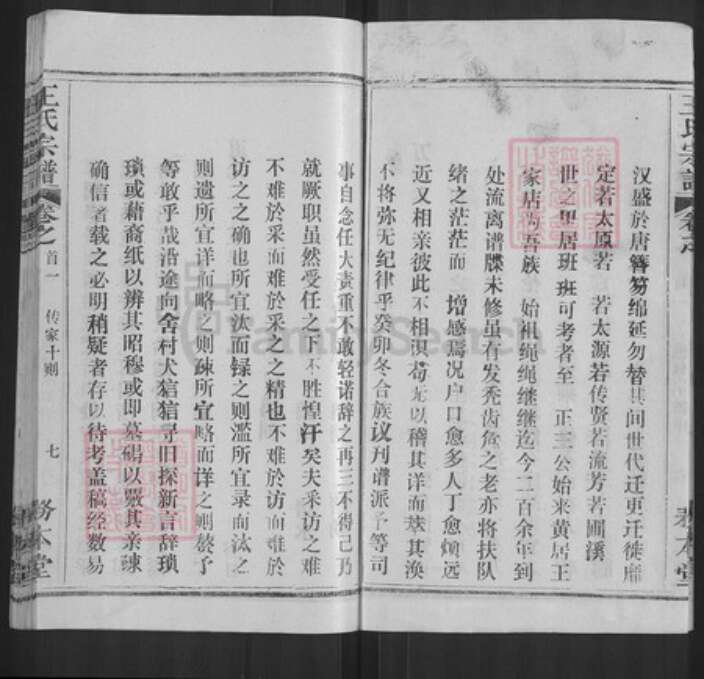 汉盛於唐簪笏绵延勿替其间世代迁更迁徙靡
定若太原若 若太源若传贤若流芳若圃溪
世之里居班班可考者至 正三公始来黄居王
家店为吾族 始祖绳绳继继迄今二百余年到
处流离谱牒未修虽有发秃齿危之老亦将扶队
绪之茫茫而 增感焉况户口愈多人丁愈烦远
近又相亲彼此不相识苟无以稽其详而萃其涣
不将弥无纪律乎癸卯冬合族议刊谱派予等司
事自念任大责重不敢轻诺辞之再三不得已乃
就厥职虽然受任之下不胜惶汗矣夫采访之难
不难於采而难於采之之精也不难於访而难於
访之之确也所宜汰而录之则滥所宜录而汰之
则遗所宜详而略之则疎所宜略而详之则赘予
等敢乎哉沿途向舍村犬狺狺寻旧探新言辞琐
琐或藉裔纸以辨其昭穆或即墓碣以覈其亲疎
确信者载之必明稍疑者存以待考盖稿经数易
王氏宗谱
卷之
首一
传家十则
七
务本堂
王氏宗谱
务本堂
FamilySearch